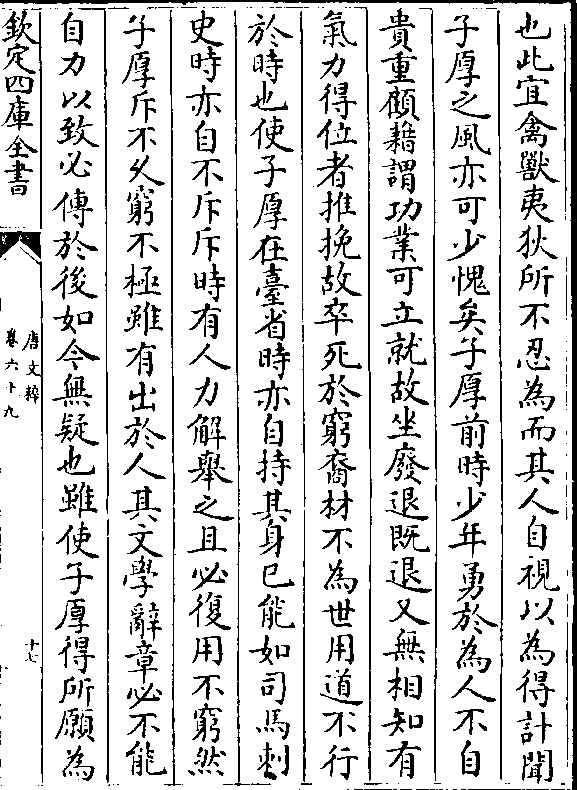 也此宜禽獸夷狄所不忍為而其人自視以為得計聞
子厚之風亦可少愧矣子厚前時少年勇於為人不自
貴重顧藉謂功業可立就故坐廢退既退又無相知有
氣力得位者推挽故卒死於窮裔材不為世用道不行
於時也使子厚在臺省時亦自持其身已能如司馬刺
史時亦自不斥斥時有人力解舉之且必復用不窮然
子厚斥不久窮不極雖有出於人其文學辭章必不能
自力以致必傳於後如今無疑也雖使子厚得所願為
欽定四庫全書
唐文粹
卷六十九
十七